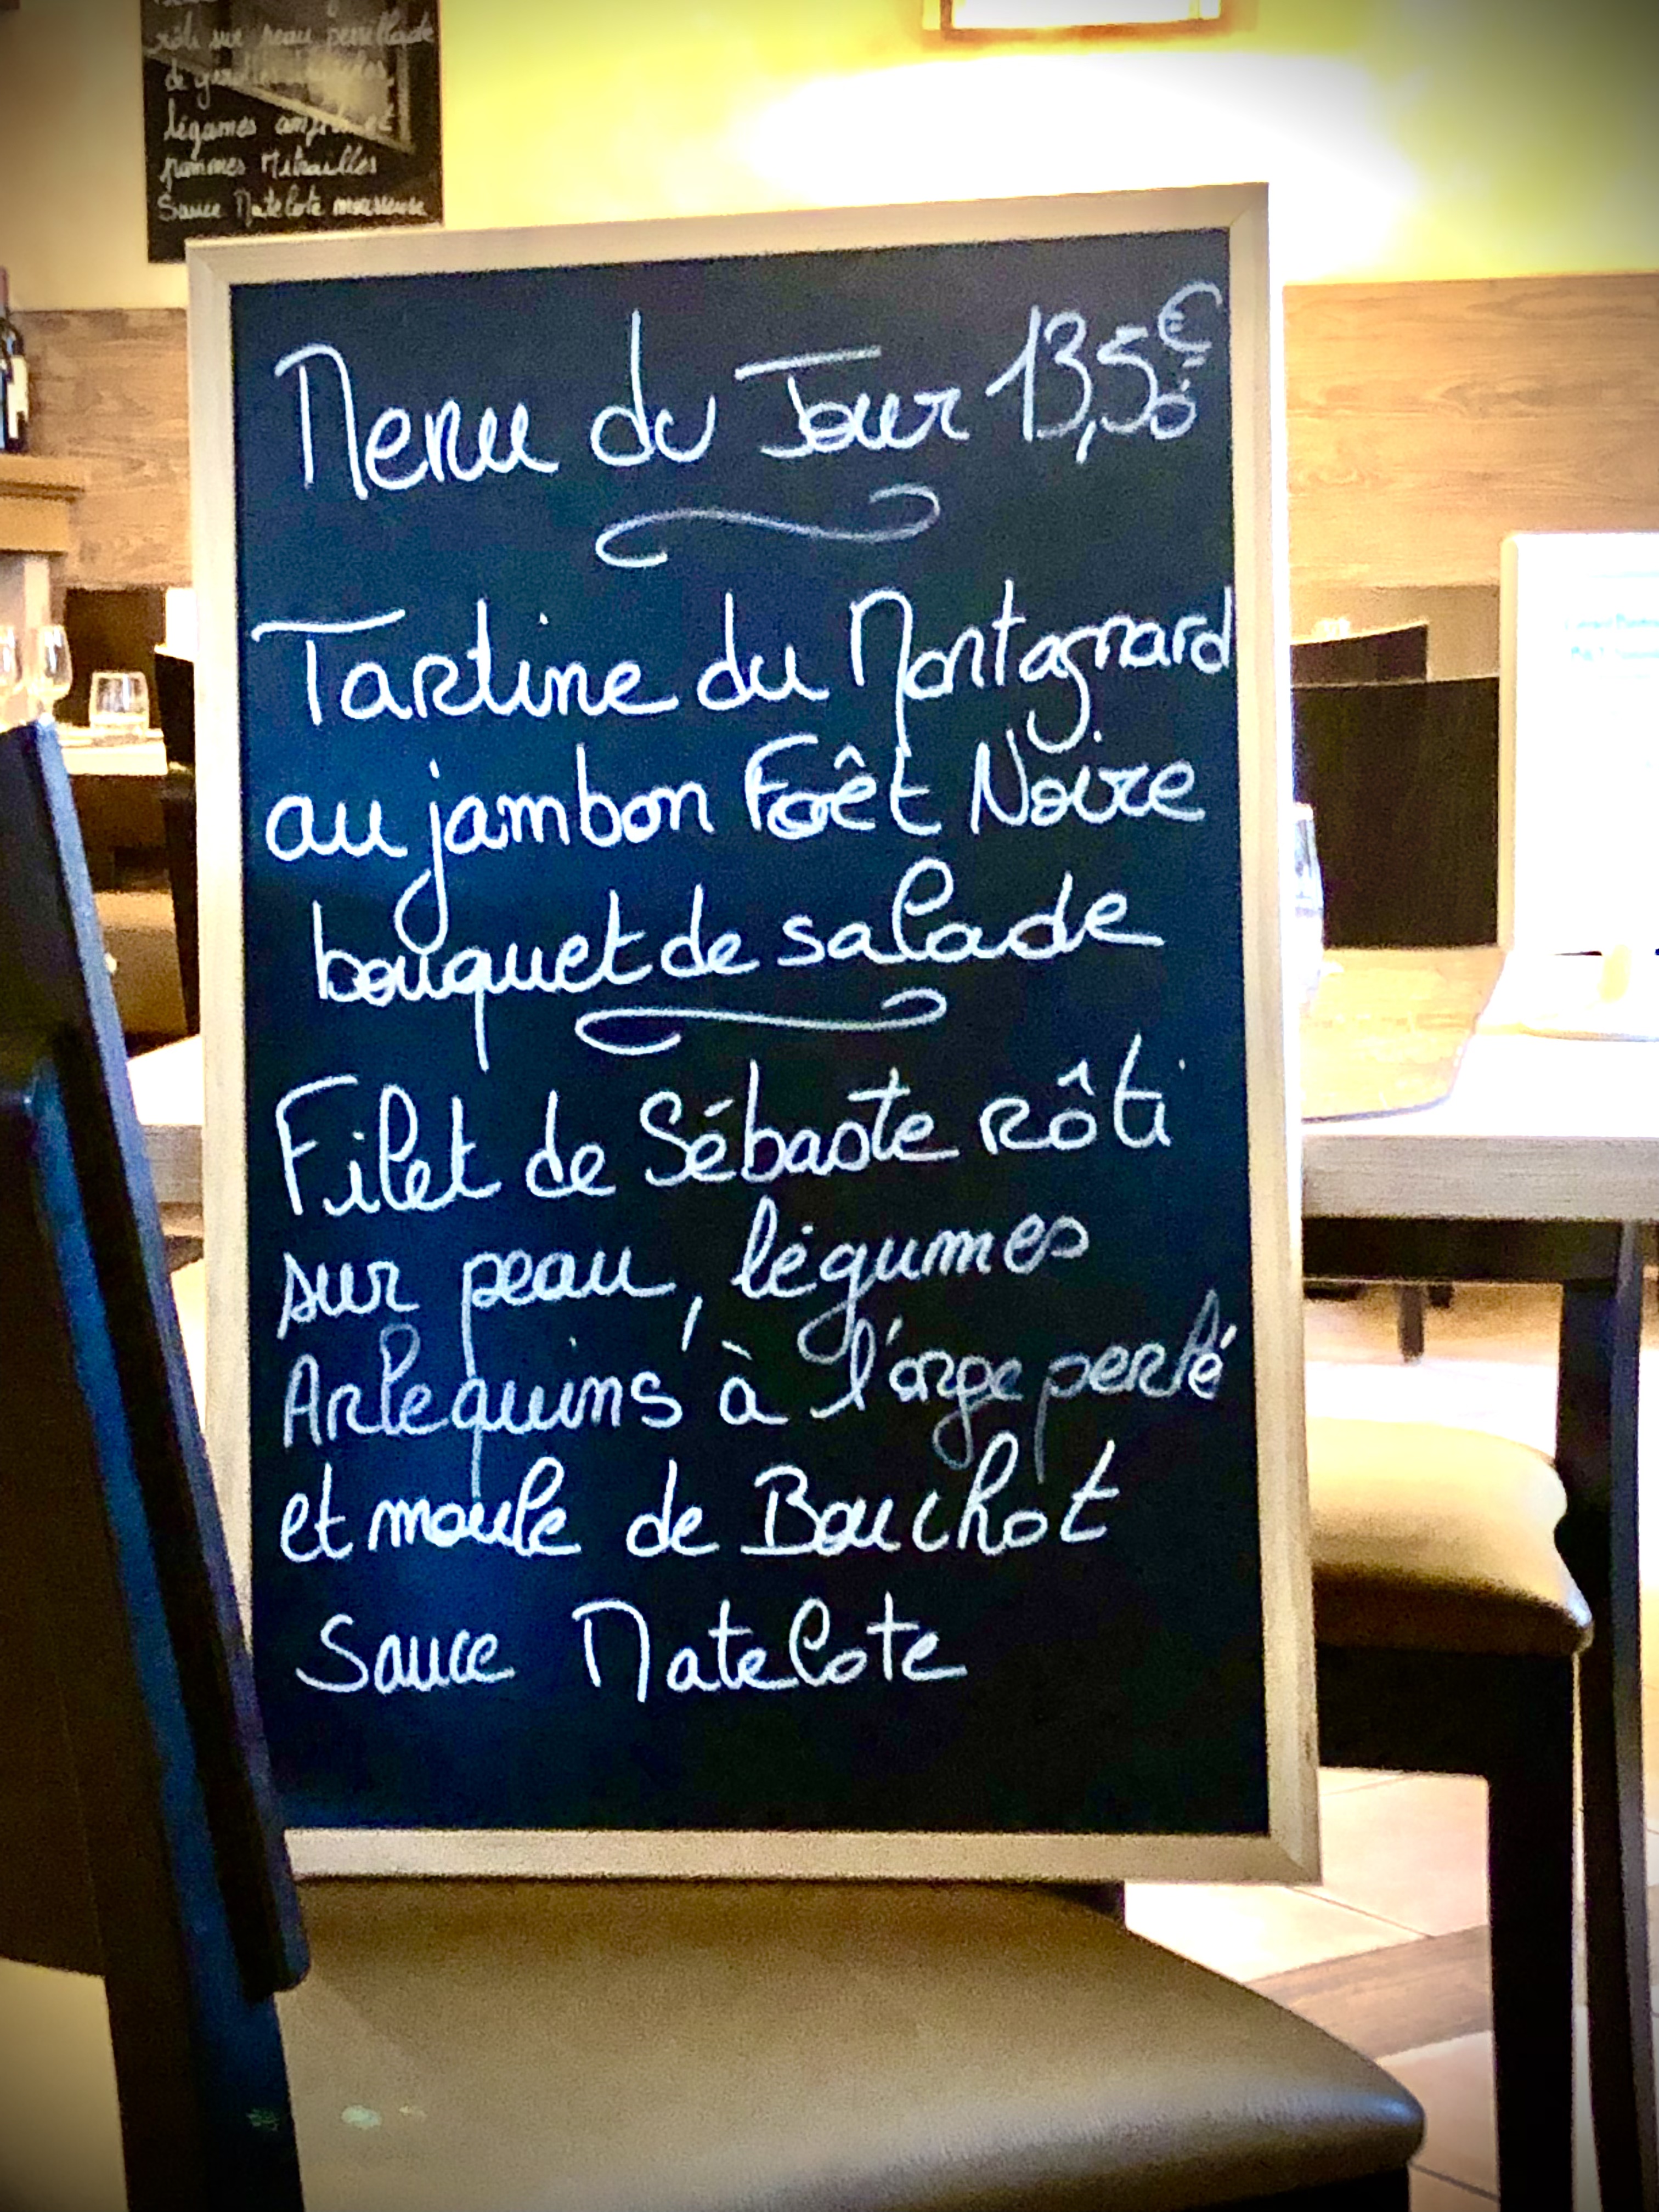 rôti sur peau persillade
de
légumes
pommes Mitrailles
Sauce Matelote mousseuse
Menu du Jour 13,50€
Tartine du Montagnard
au jambon Forêt Noire
bouquet de salade
Filet de Sébaste rôti
sur peau, légumes
Arlequins à l'orge perlé
et moule de Bouchot
Sauce Matelote